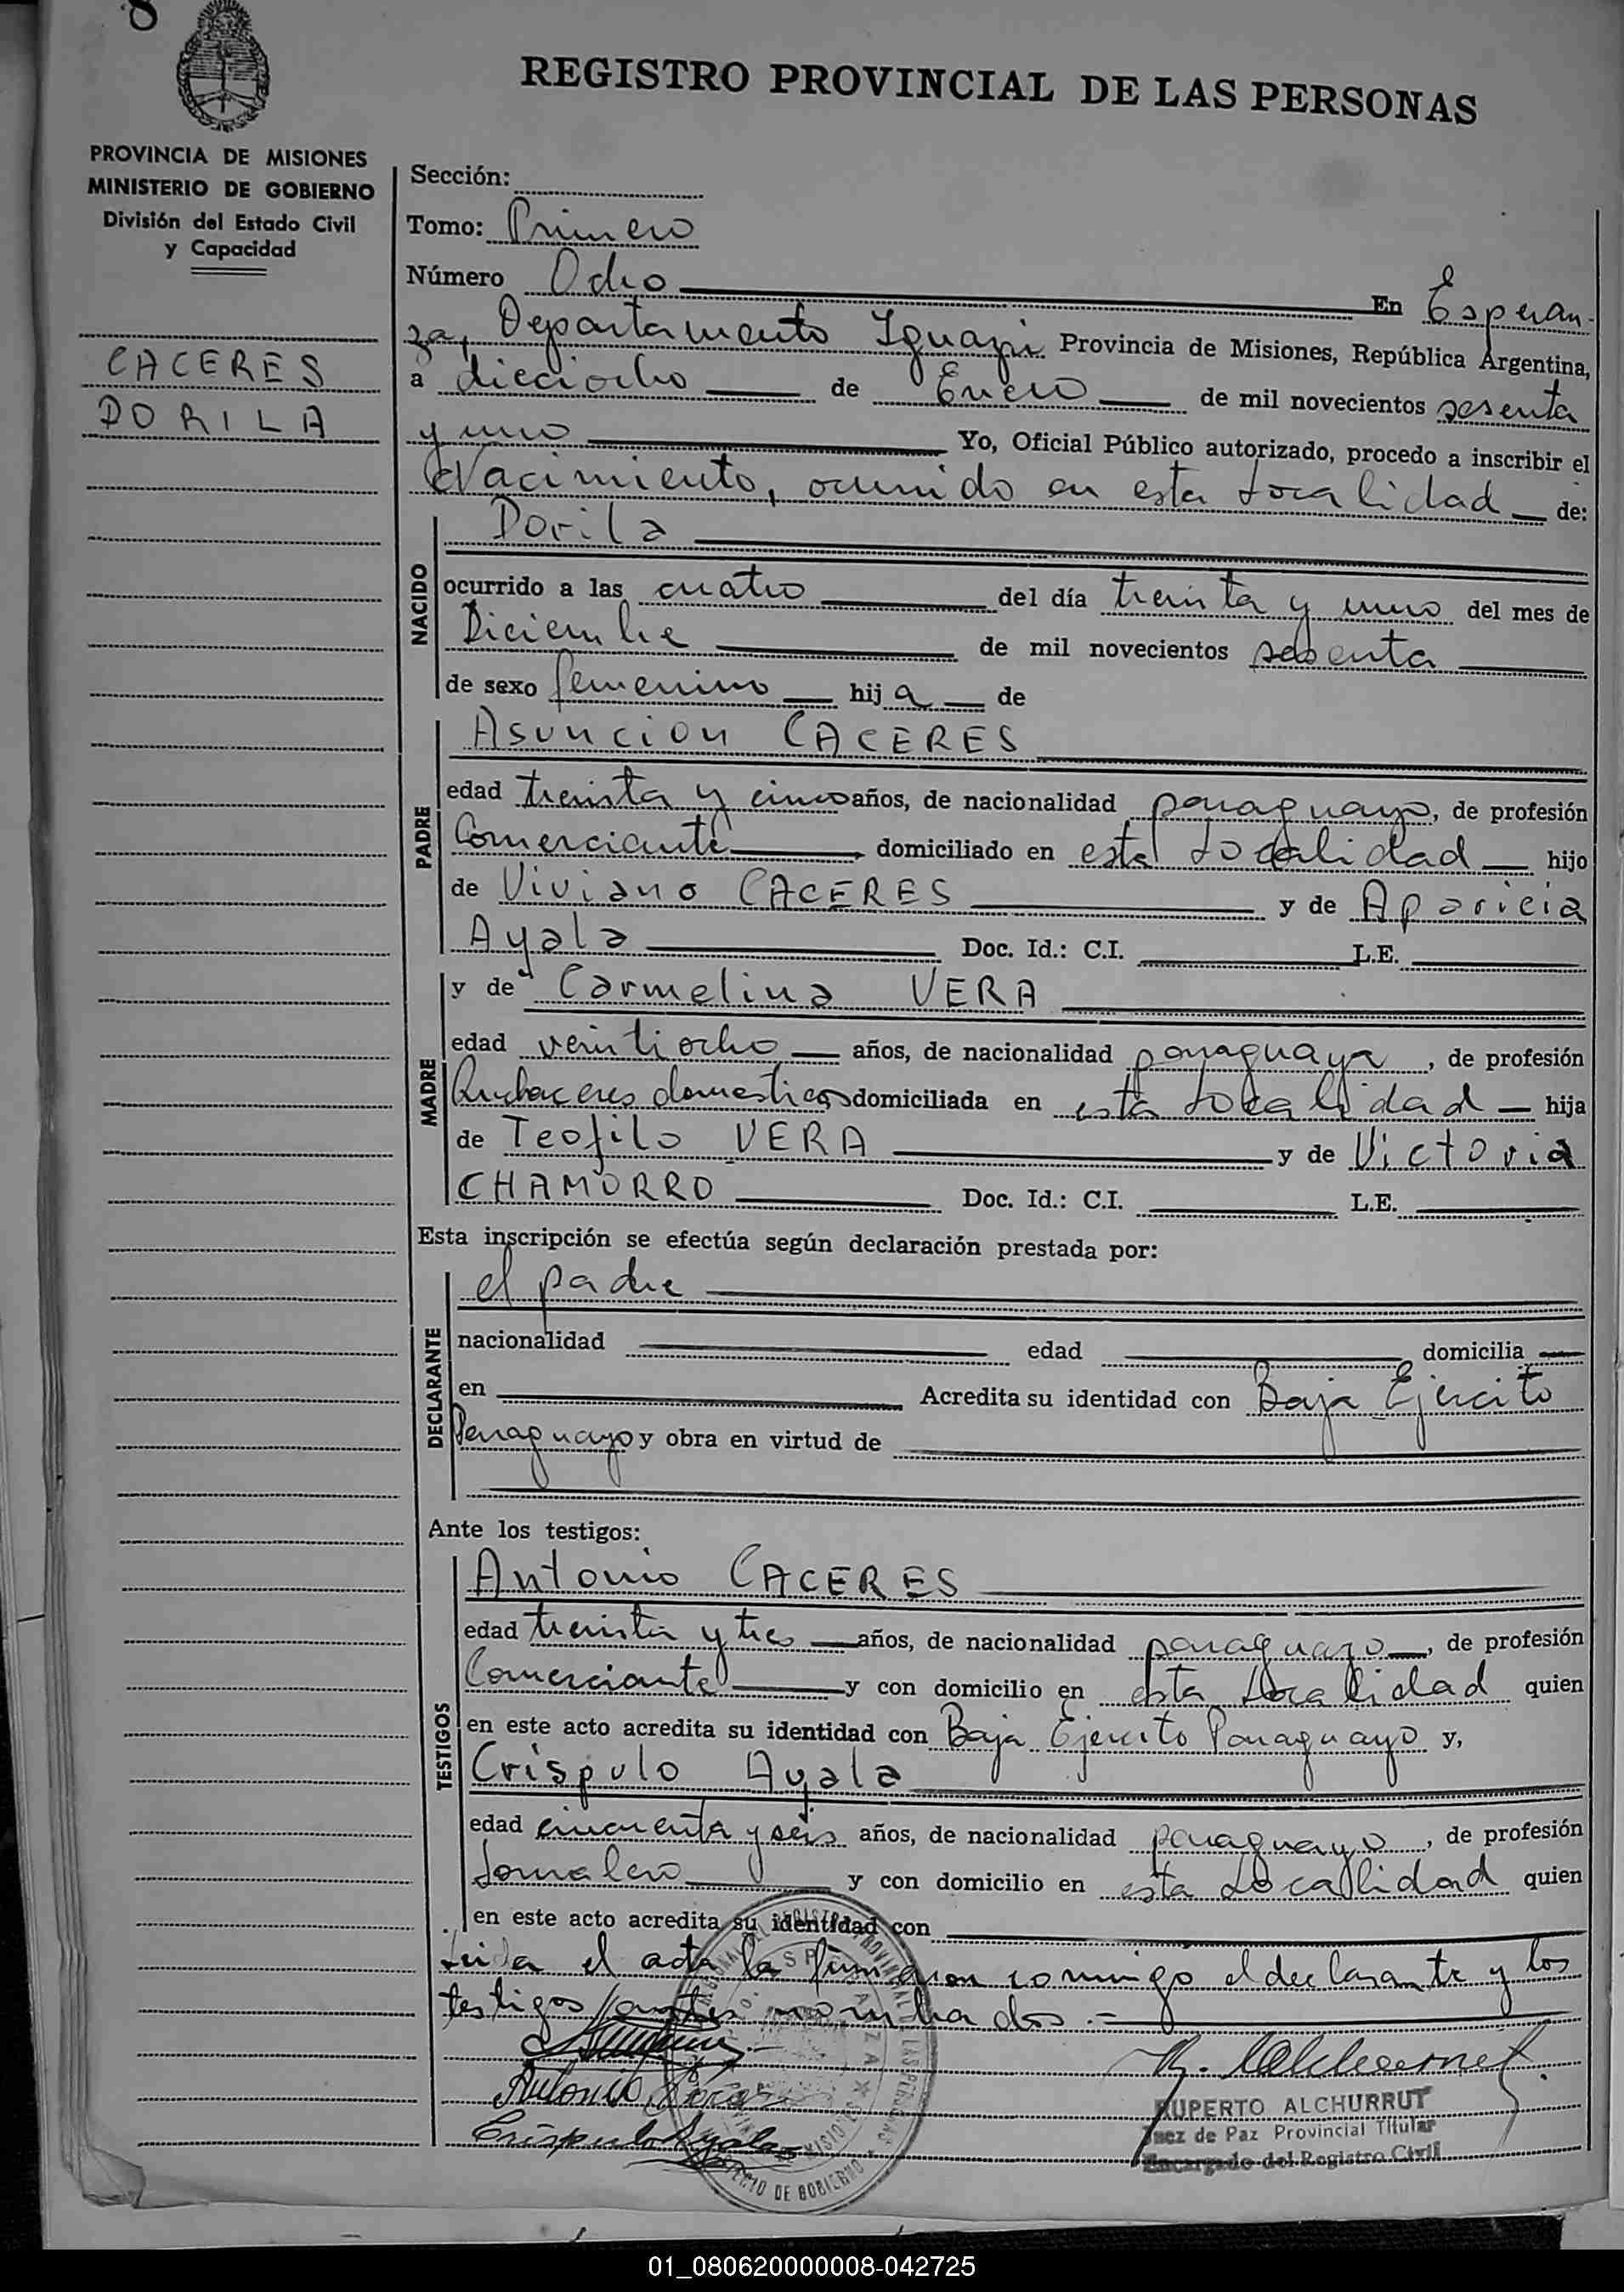 8
REGISTRO PROVINCIAL DE LAS PERSONAS
PROVINCIA DE MISIONES
MINISTERIO DE GOBIERNO
División del Estado Civil
y Capacidad
CACERES
DORILA
Sección:
Tomo: Primero
Número Ocho En Esperan-
za, Departamento Iguazú Provincia de Misiones, República Argentina,
a dieciocho de Enero de mil novecientos sesenta
y uno Yo, Oficial Público autorizado, procedo a inscribir el
Nacimiento, ocurrido en esta Localidad de:
NACIDO
Dorila
ocurrido a las cuatro del día treinta y uno del mes de
Diciembre de mil novecientos sesenta
de sexo femenino hija de
PADRE
Asuncion CACERES
edad treinta y cinco años, de nacionalidad paraguayo, de profesión
Comerciante domiciliado en esta Localidad hijo
de Viviano CACERES y de Aparicia
Ayala Doc. Id.: C.I. L.E.
MADRE
y de Carmelina VERA
edad veintiocho años, de nacionalidad paraguaya, de profesión
Quehaceres domesticos domiciliada en esta Localidad hija
de Teofilo VERA y de Victoria
CHAMORRO Doc. Id.: C.I. L.E.
Esta inscripción se efectúa según declaración prestada por:
DECLARANTE
el padre
nacionalidad edad domicilia
en Acredita su identidad con Baja Ejercito
Paraguayo y obra en virtud de
Ante los testigos:
TESTIGOS
Antonio CACERES
edad treinta y tres años, de nacionalidad paraguayo, de profesión
Comerciante y con domicilio en esta Localidad quien
en este acto acredita su identidad con Baja Ejercito Paraguayo y,
Crispulo Ayala
edad cincuenta y seis años, de nacionalidad paraguayo, de profesión
Jornalero y con domicilio en esta Localidad quien
en este acto acredita su identidad con
Leida el acta la firmaron conmigo el declarante y los
testigos antes nombrados.=
Antonio
Crispulo Ayala
RUPERTO ALCHURRUT
Juez de Paz Provincial Titular
Encargado del Registro Civil
01_080620000008-042725